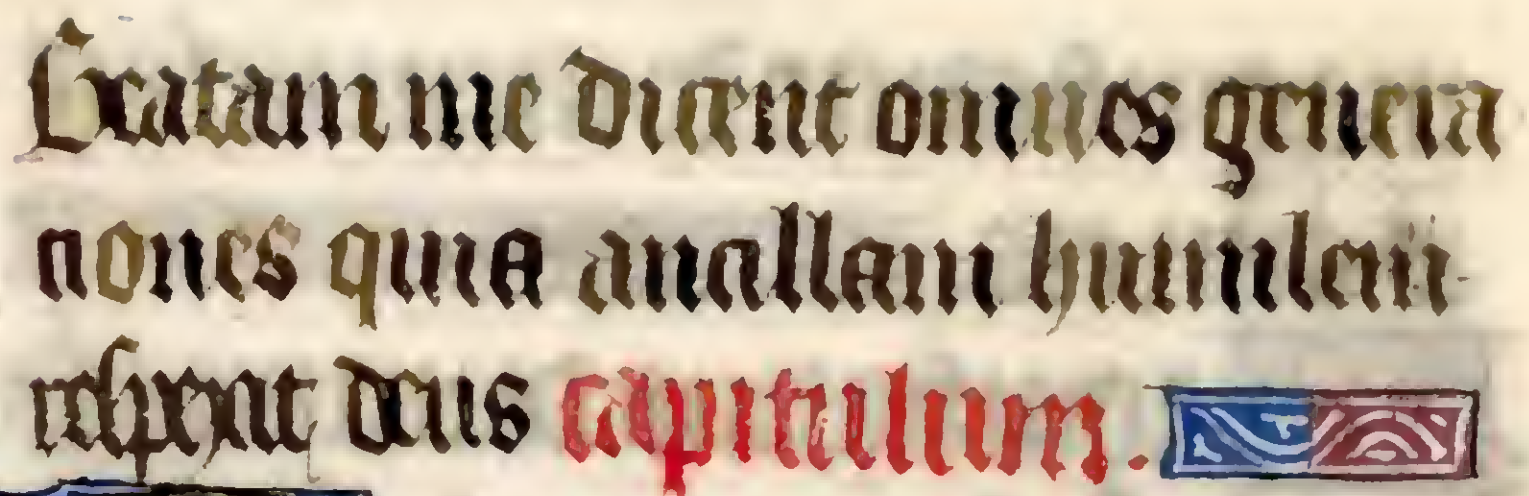 Beatam me dicent omnes genera
nones quia ancillam humilem
respexit deus capitulum.